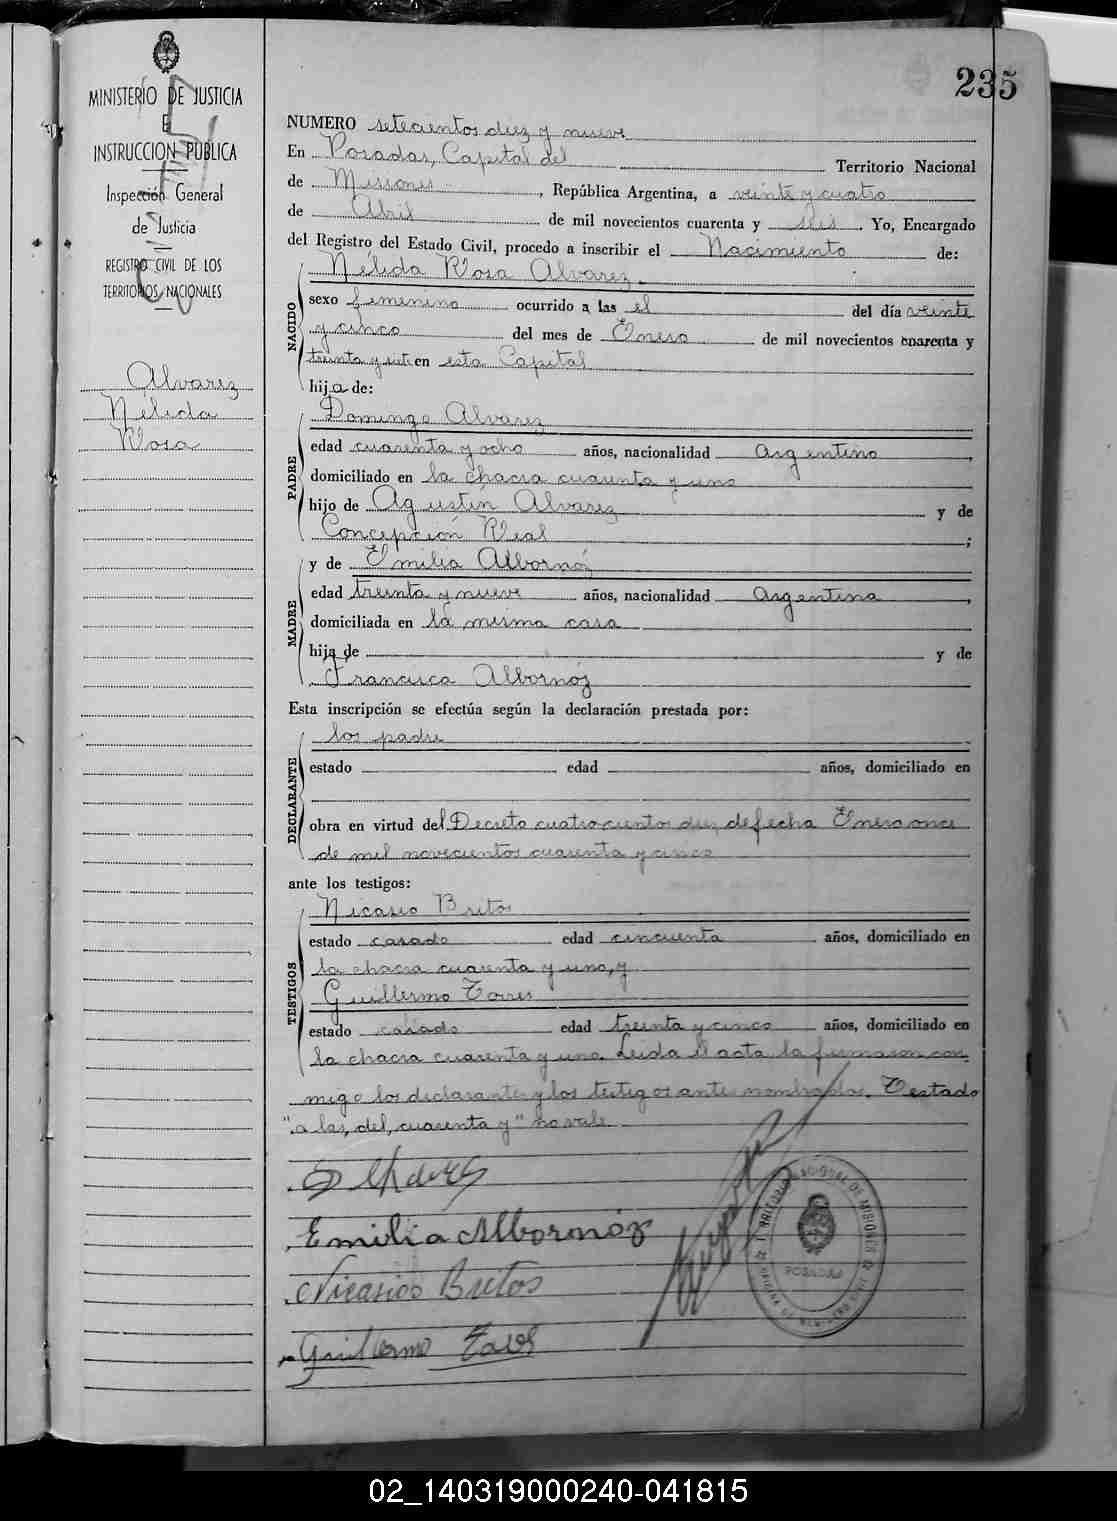 235
MINISTERIO DE JUSTICIA
E
INSTRUCCION PUBLICA
Inspección General
de Justicia
REGISTRO CIVIL DE LOS
TERRITORIOS NACIONALES
Alvarez
Nélida
Rosa
NUMERO setecientos diez y nueve
En Posadas, Capital del Territorio Nacional
de Misiones, República Argentina, a veinte y cuatro
de Abril de mil novecientos cuarenta y seis. Yo, Encargado
del Registro del Estado Civil, procedo a inscribir el Nacimiento de:
NACIDO
Nélida Rosa Alvarez
sexo femenino ocurrido a las el del día veinte
y cinco del mes de Enero de mil novecientos cuarenta y
treinta y siete en esta Capital
hija de:
PADRE
Domingo Alvarez
edad cuarenta y ocho años, nacionalidad Argentino,
domiciliado en la chacra cuarenta y uno
hijo de Agustín Alvarez y de
Concepción Real;
MADRE
y de Emilia Albornóz
edad treinta y nueve años, nacionalidad Argentina,
domiciliada en la misma casa
hija de y de
Francisca Albornóz
Esta inscripción se efectúa según la declaración prestada por:
DECLARANTE
los padre
estado edad años, domiciliado en
obra en virtud del Decreto cuatrocientos diez de fecha Enero once
de mil novecientos cuarenta y cinco
ante los testigos:
TESTIGOS
Nicasio Britos
estado casado edad cincuenta años, domiciliado en
la chacra cuarenta y uno, y
Guillermo Torres
estado casado edad treinta y cinco años, domiciliado en
la chacra cuarenta y uno. Leida el acta la firmaron con
migo los declarantes y los testigos antes nombrados. Testado
"a las, del, cuarenta y" no vale.
Emilia Albornóz
Nicasio Britos
Guillermo
TERRITORIO NACIONAL DE MISIONES
POSADAS
02_140319000240-041815